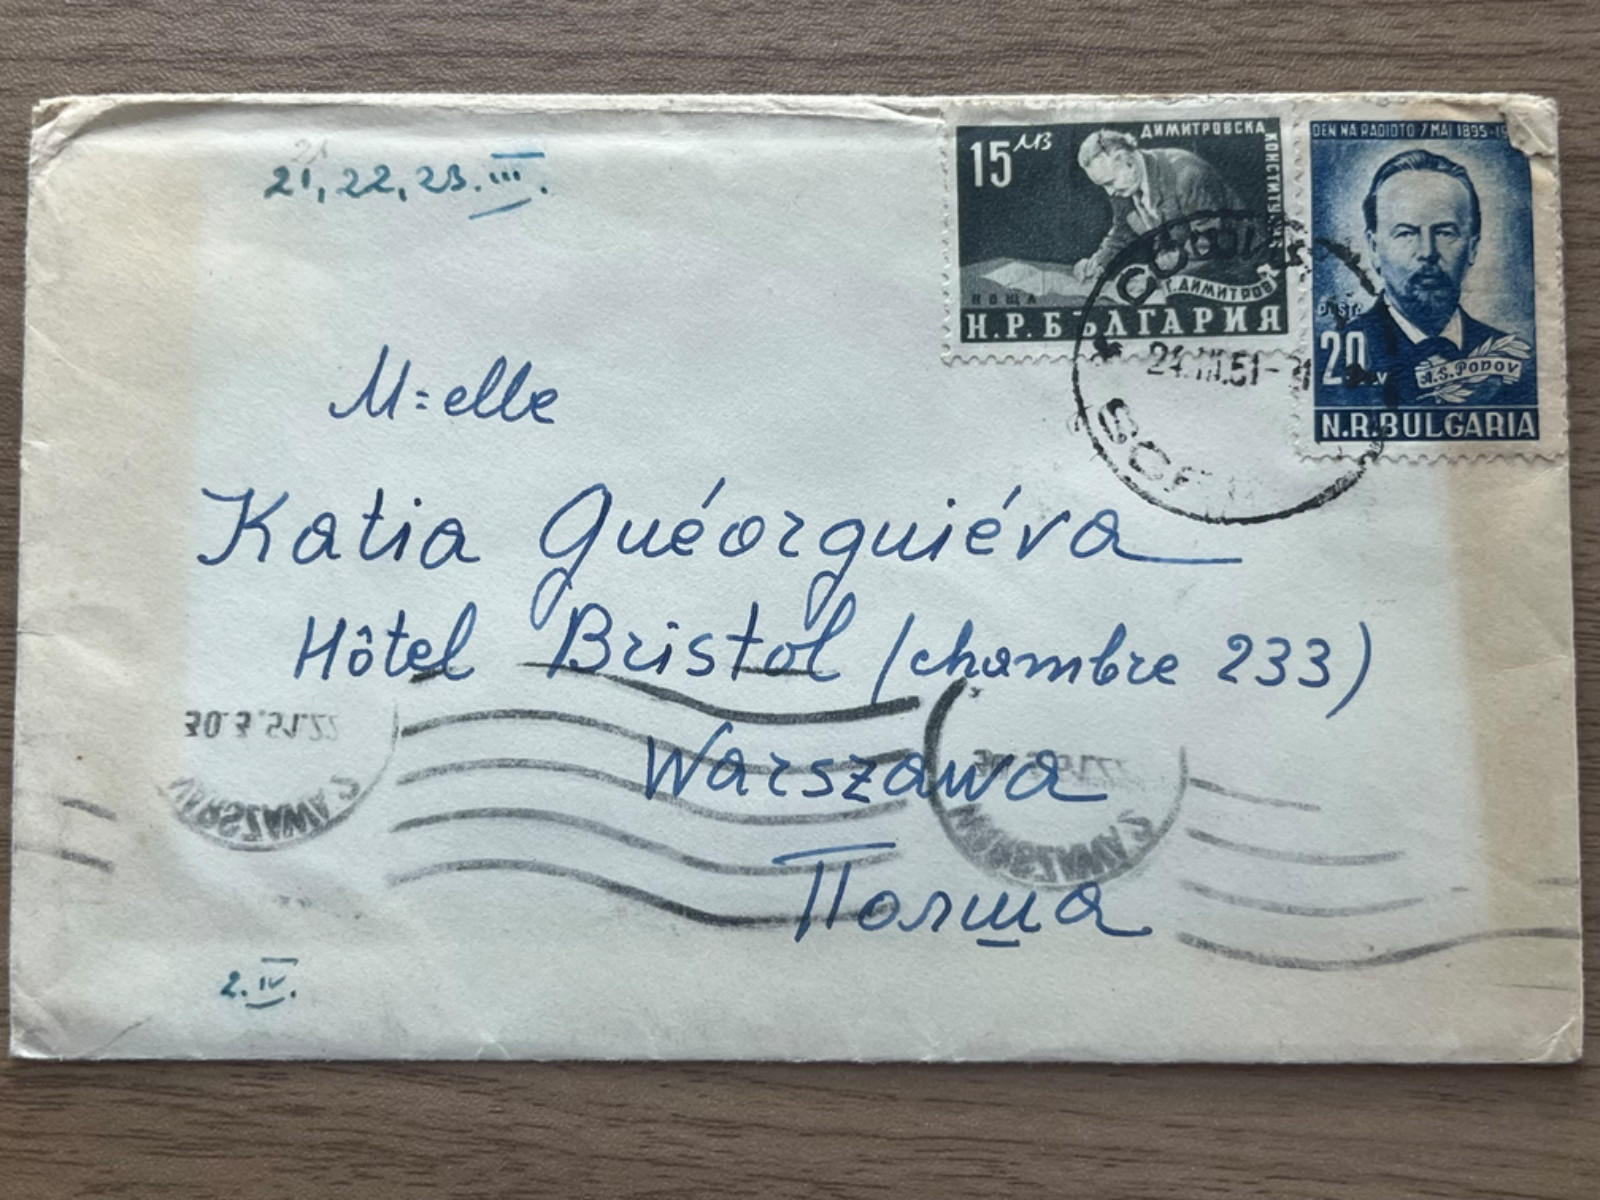 21, 22, 23. III.
15 ЛВ
ДИМИТРОВСКА
КОНСТИТУЦИЯ
Г. ДИМИТРОВ
ПОЩА
Н.Р.БЪЛГАРИЯ
DEN NA RADIOTO 7 MAI 1895-19
POSTA
20 LV
A.S. POPOV
N.R.BULGARIA
СОФИЯ
24.III.51-
SOFIA
M=elle
Katia Guéorguiéva
Hôtel Bristol (chambre 233)
Warszawa
Полша
30.3.51.22
WARSZAWA 2
30.3.51.22
WARSZAWA 2
2. IV.